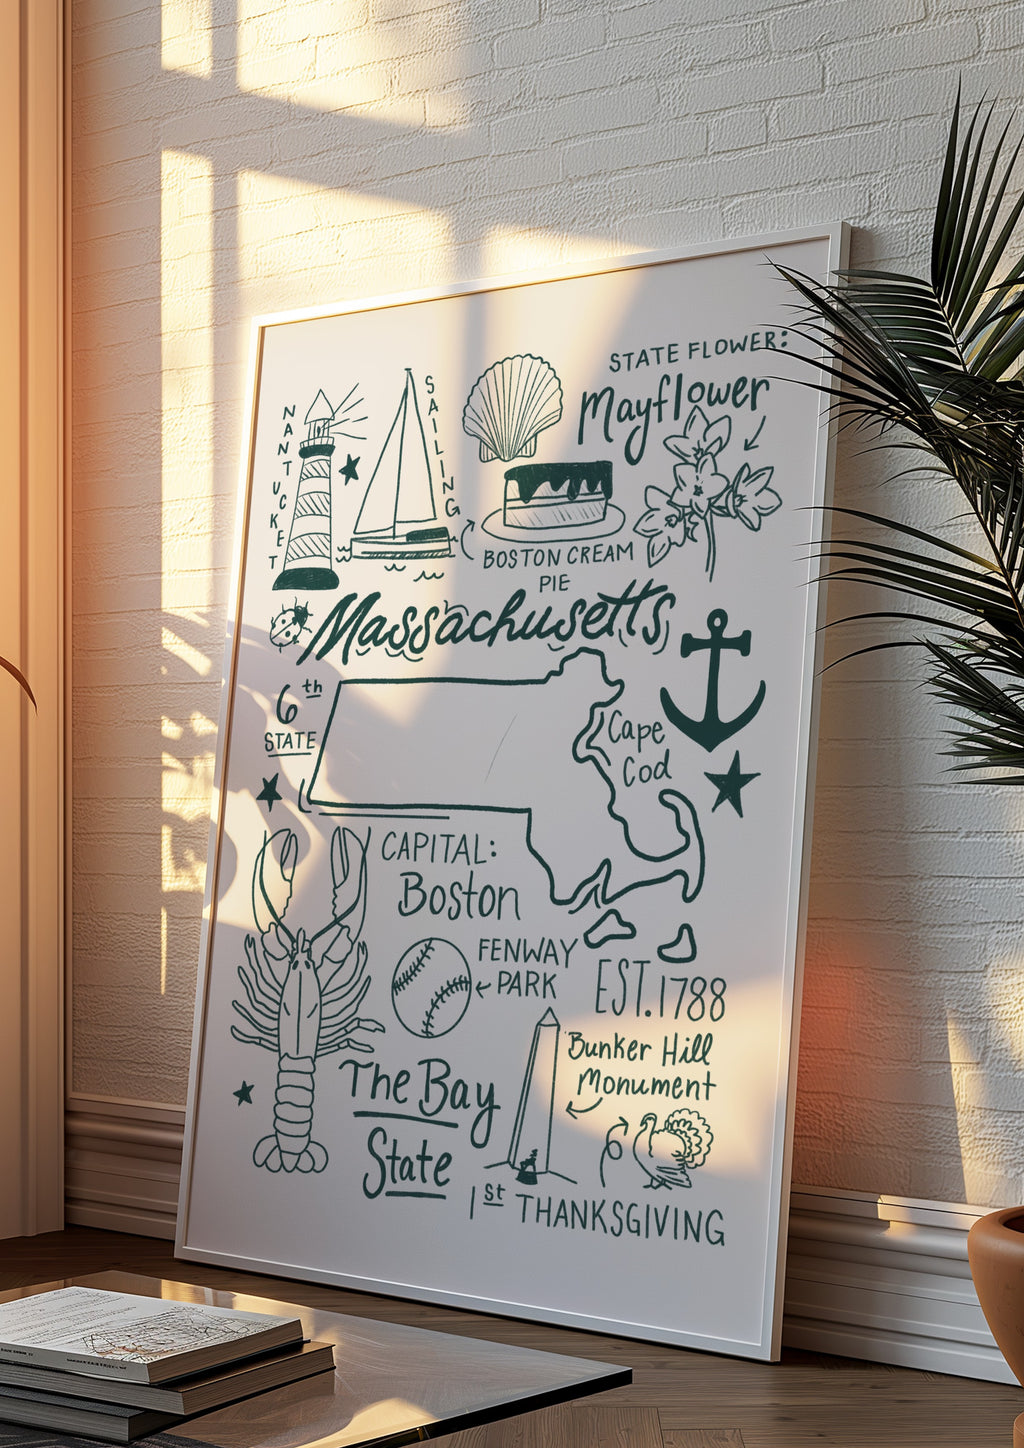 STATE FLOWER:
Mayflower
NANTUCKET
SAILING
BOSTON CREAM
PIE
Massachusetts
6th
STATE
Cape
Cod
CAPITAL:
Boston
FENWAY
PARK
EST. 1788
Bunker Hill
Monument
The Bay
State
1st THANKSGIVING